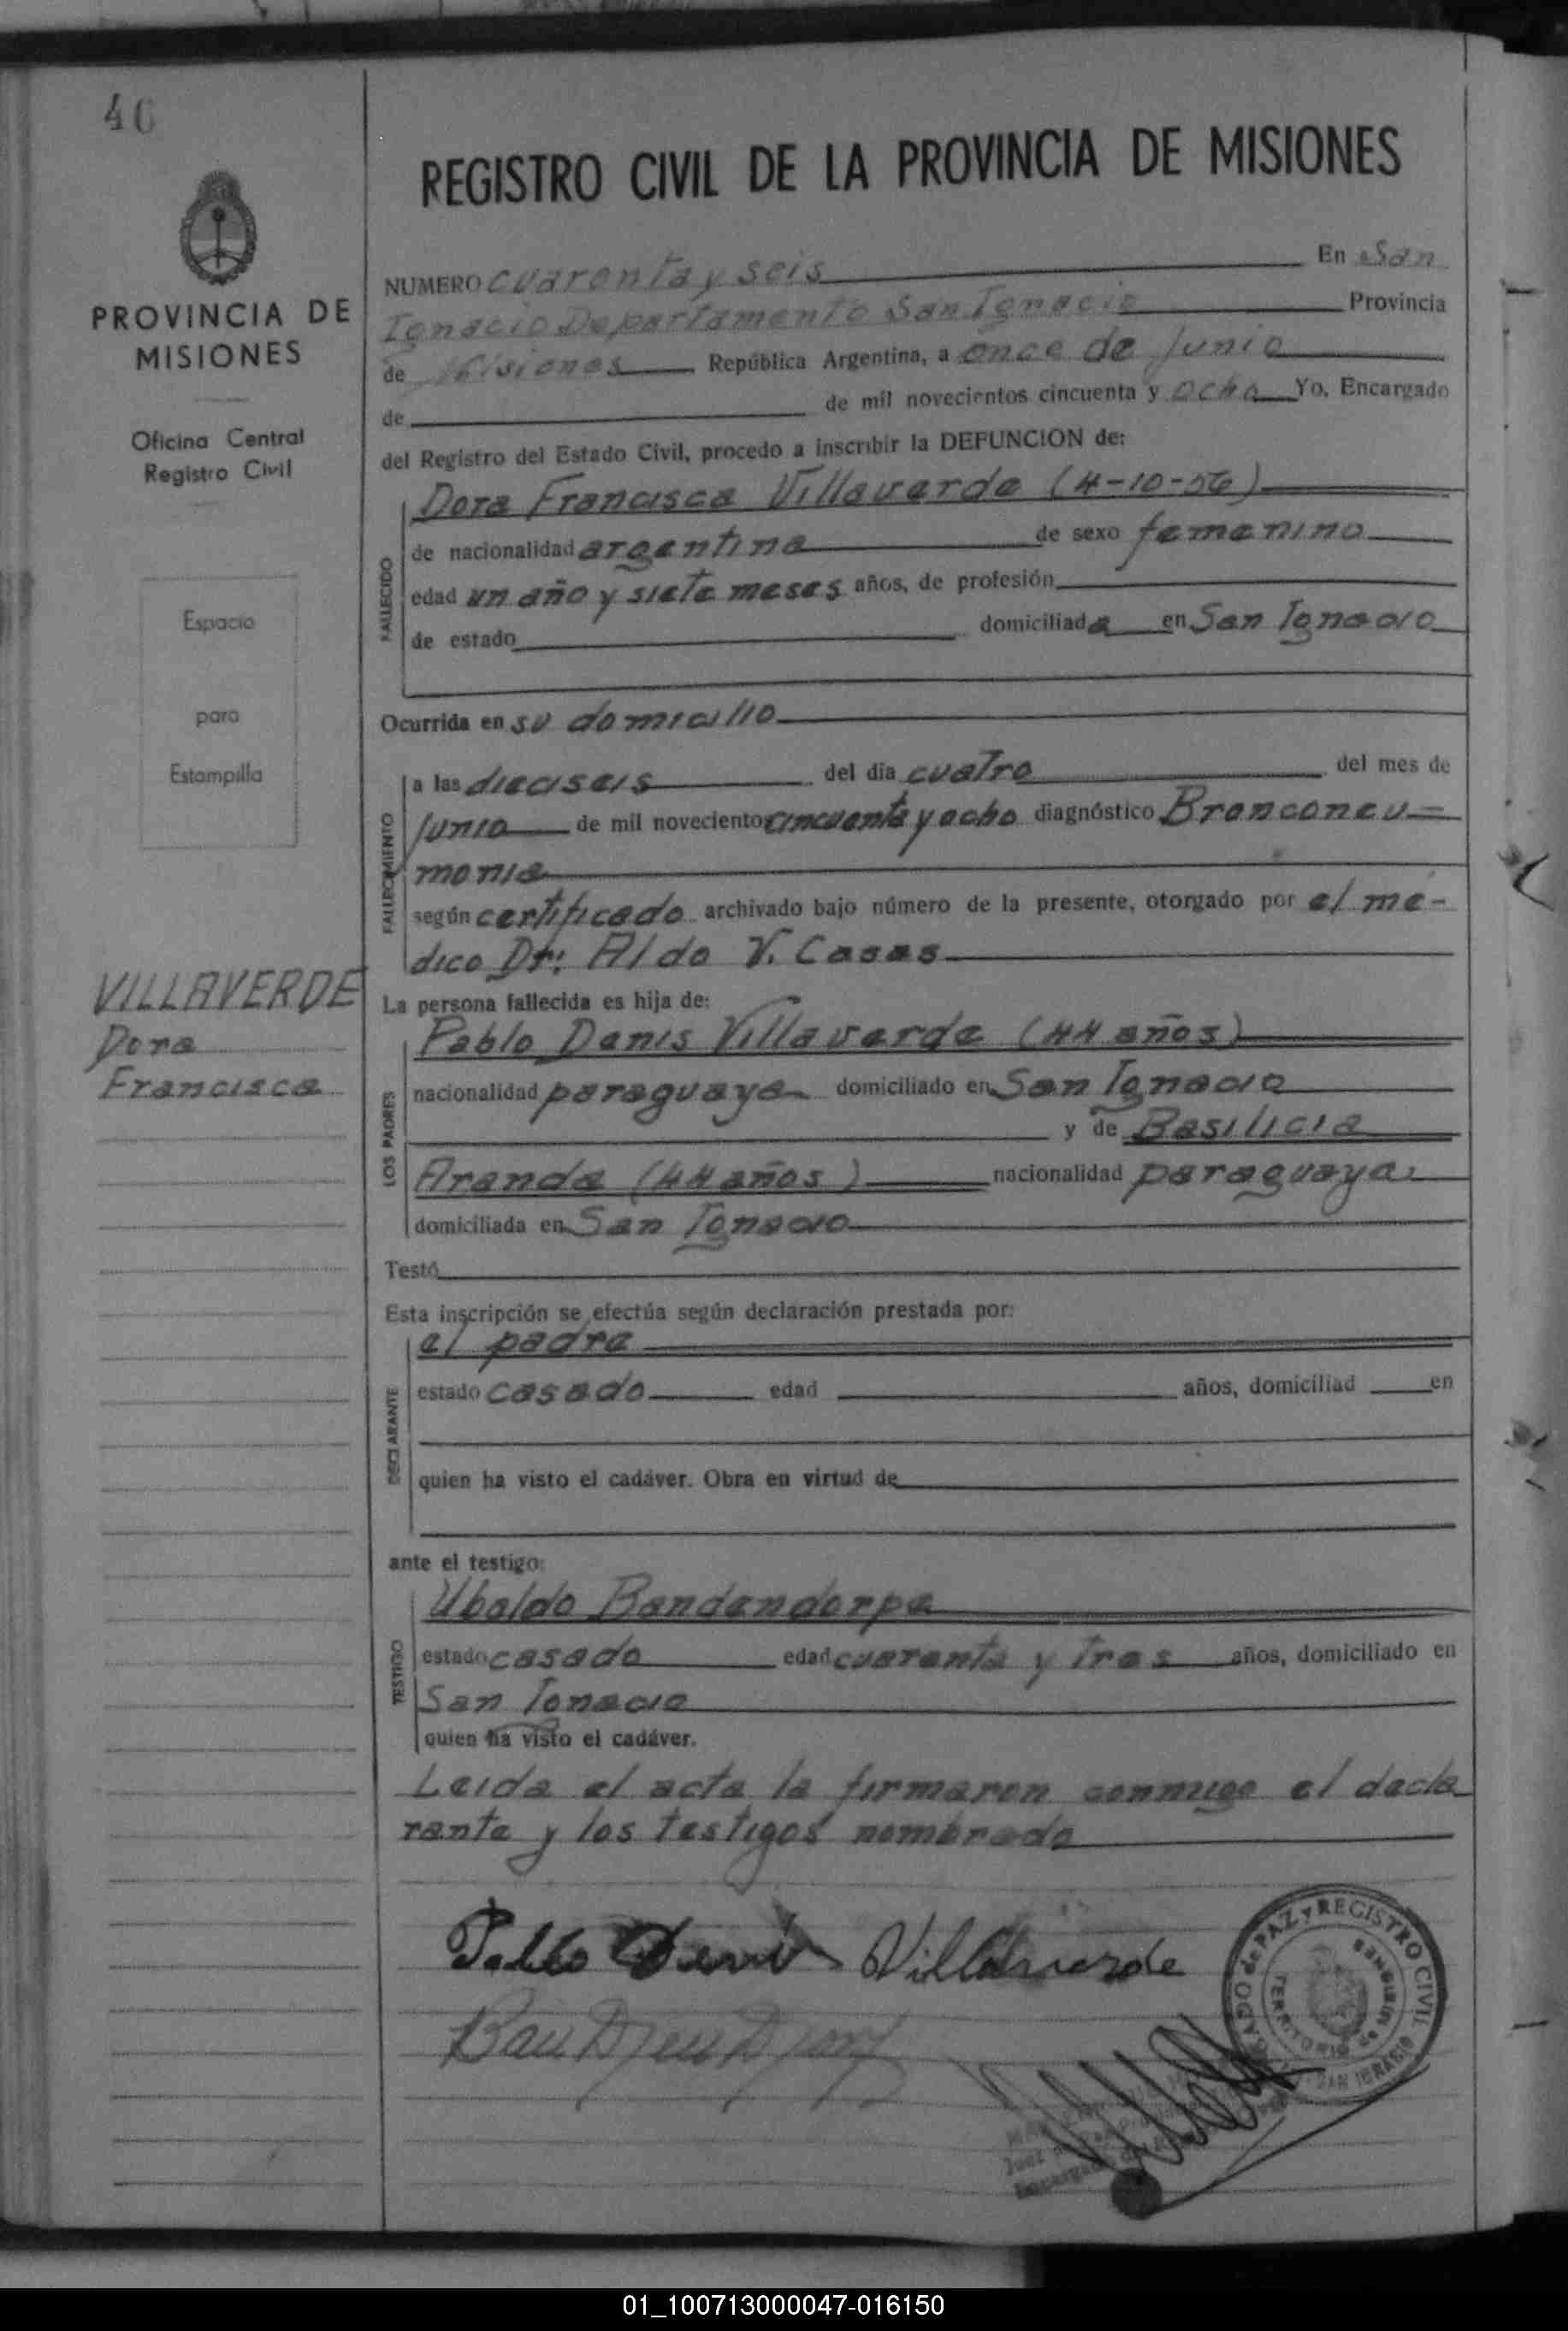 46
REGISTRO CIVIL DE LA PROVINCIA DE MISIONES
PROVINCIA DE
MISIONES
Oficina Central
Registro Civil
Espacio
para
Estampilla
VILLAVERDE
Dora
Francisca
NUMERO cuarenta y seis En San
Ignacio Departamento San Ignacio Provincia
de Misiones República Argentina, a once de junio
de de mil novecientos cincuenta y ocho Yo, Encargado
del Registro del Estado Civil, procedo a inscribir la DEFUNCION de:
FALLECIDO
Dora Francisca Villaverde (4-10-56)
de nacionalidad argentina de sexo femenino
edad un año y siete meses años, de profesión
de estado domiciliada en San Ignacio
Ocurrida en su domicilio
FALLECIMIENTO
a las dieciseis del día cuatro del mes de
junio de mil novecientos cincuenta y ocho diagnóstico Bronconeu=
monia
según certificado archivado bajo número de la presente, otorgado por el mé-
dico Dr: Aldo V. Casas
La persona fallecida es hija de:
LOS PADRES
Pablo Denis Villaverde (44 años)
nacionalidad paraguaya domiciliado en San Ignacio
y de Basilicia
Aranda (44 años) nacionalidad paraguaya
domiciliada en San Ignacio
Testó
Esta inscripción se efectúa según declaración prestada por:
DECLARANTE
el padre
estado casado edad años, domiciliad en
quien ha visto el cadáver. Obra en virtud de
ante el testigo:
TESTIGO
Ubaldo Bandendorpe
estado casado edad cuarenta y tres años, domiciliado en
San Ignacio
quien ha visto el cadáver.
Leida el acta la firmaron conmigo el decla
rante y los testigos nombrado
Pablo Denis Villaverde
JUZGADO de PAZ y REGISTRO CIVIL
TERRITORIO DE MISIONES
SAN IGNACIO
01_100713000047-016150